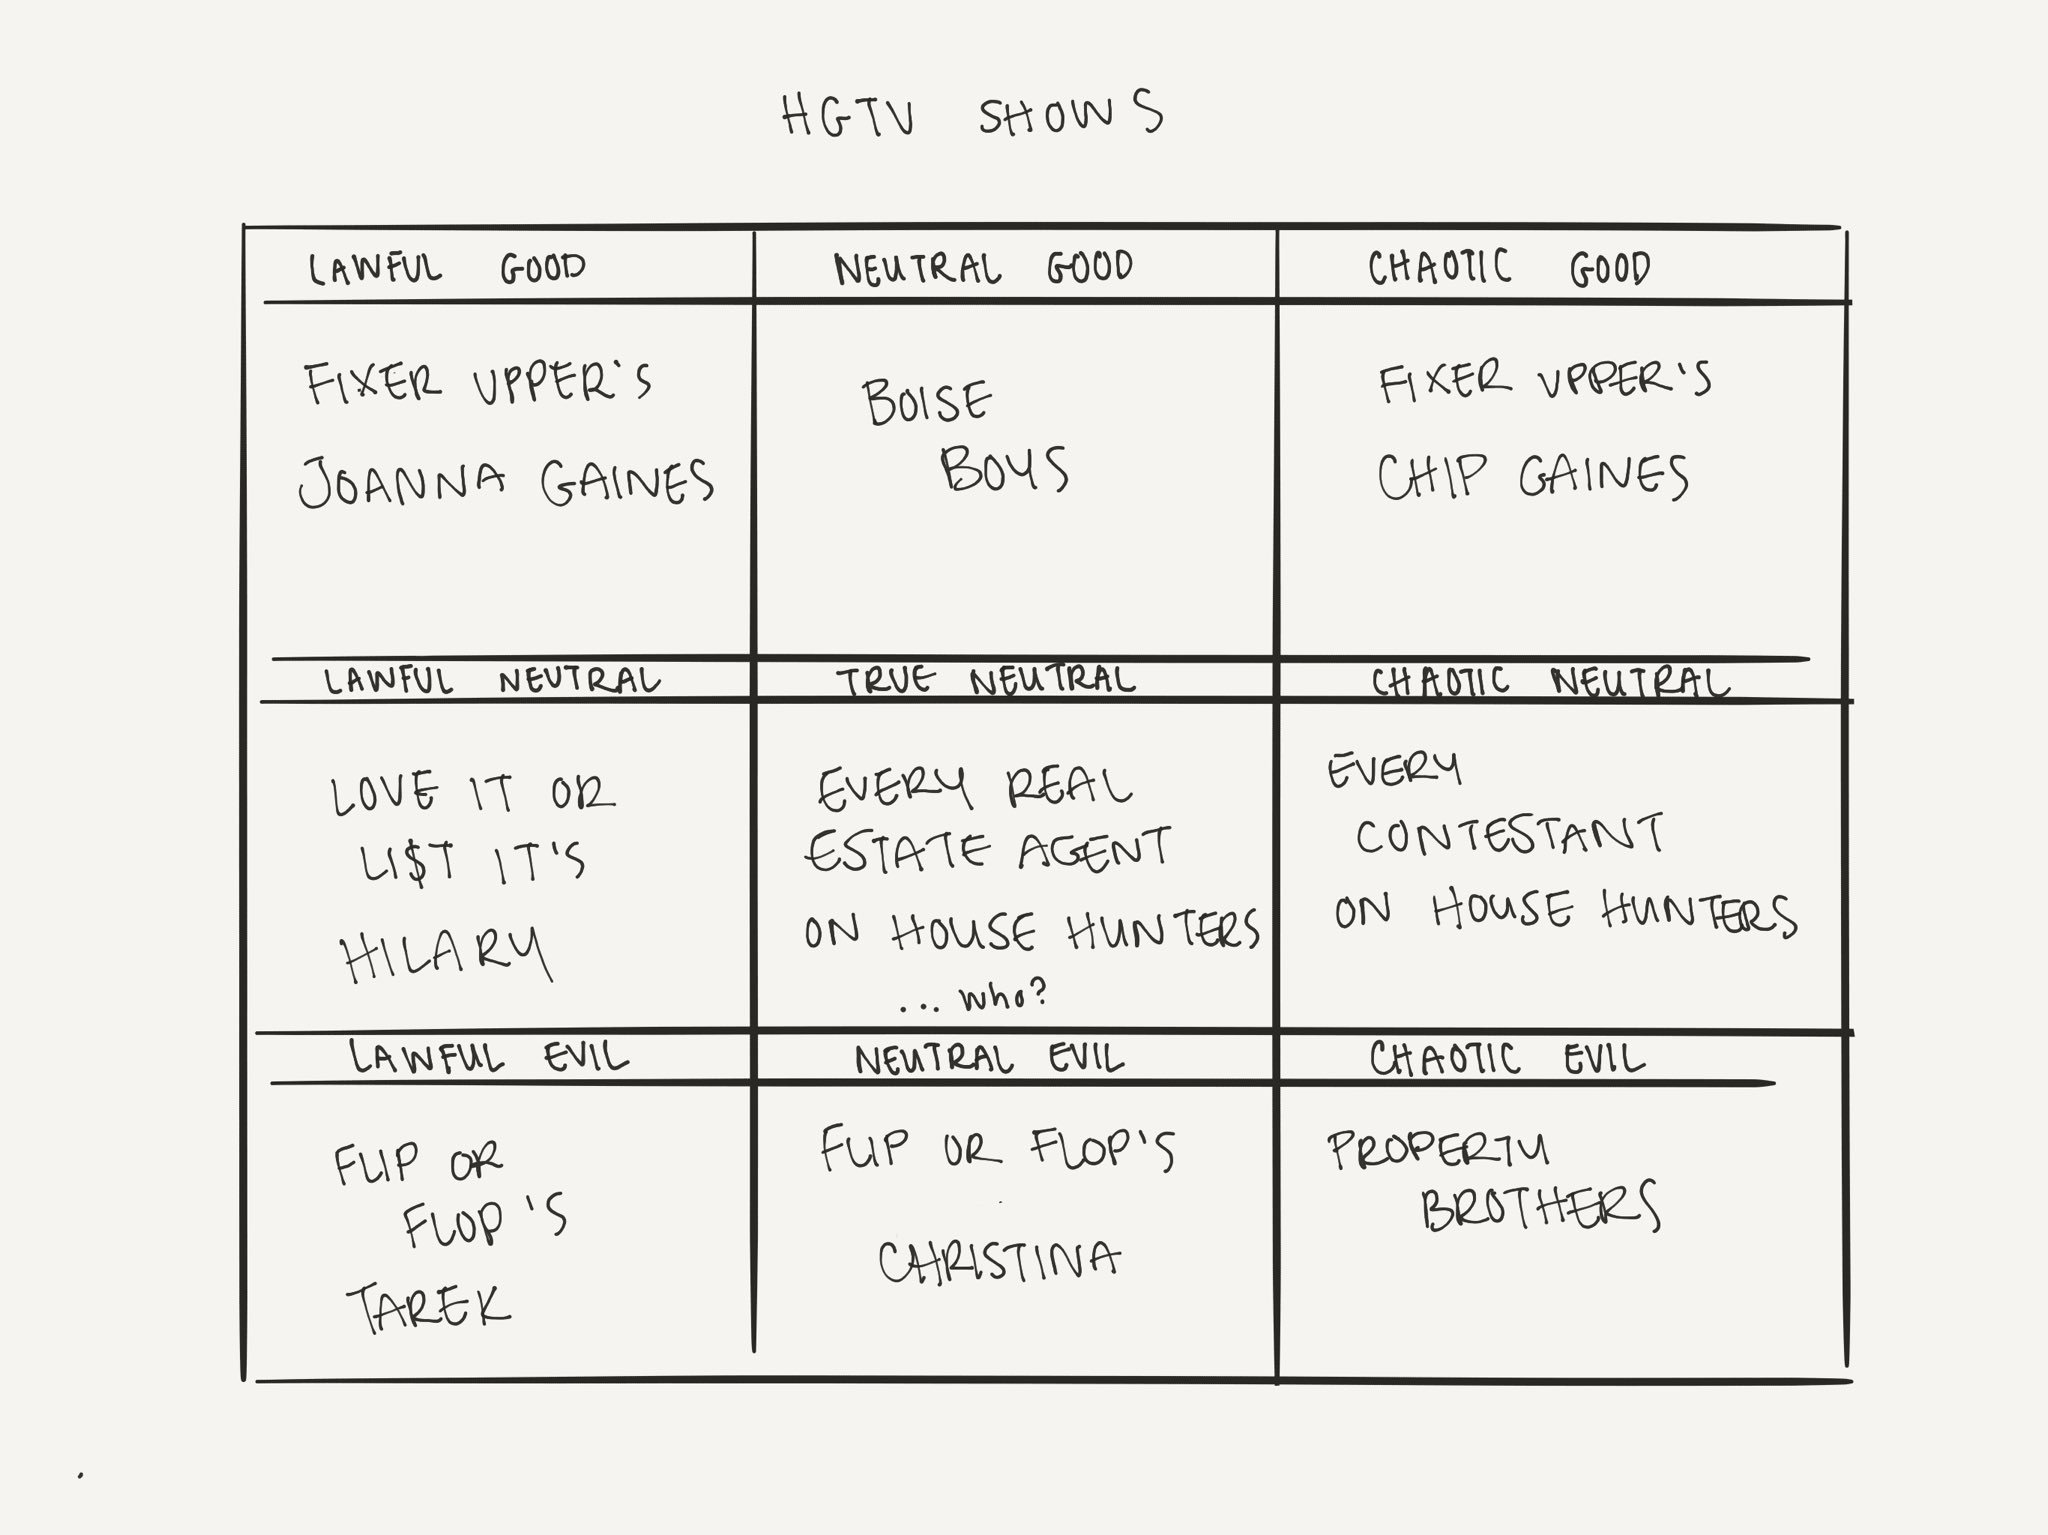 HGTV SHOWS
LAWFUL GOOD
NEUTRAL GOOD
CHAOTIC GOOD
FIXER UPPER'S
JOANNA GAINES
BOISE
BOYS
FIXER UPPER'S
CHIP GAINES
LAWFUL NEUTRAL
TRUE NEUTRAL
CHAOTIC NEUTRAL
LOVE IT OR
LI$T IT'S
HILARY
EVERY REAL
ESTATE AGENT
ON HOUSE HUNTERS
... who?
EVERY
CONTESTANT
ON HOUSE HUNTERS
LAWFUL EVIL
NEUTRAL EVIL
CHAOTIC EVIL
FLIP OR
FLOP'S
TAREK
FLIP OR FLOP'S
CHRISTINA
PROPERTY
BROTHERS